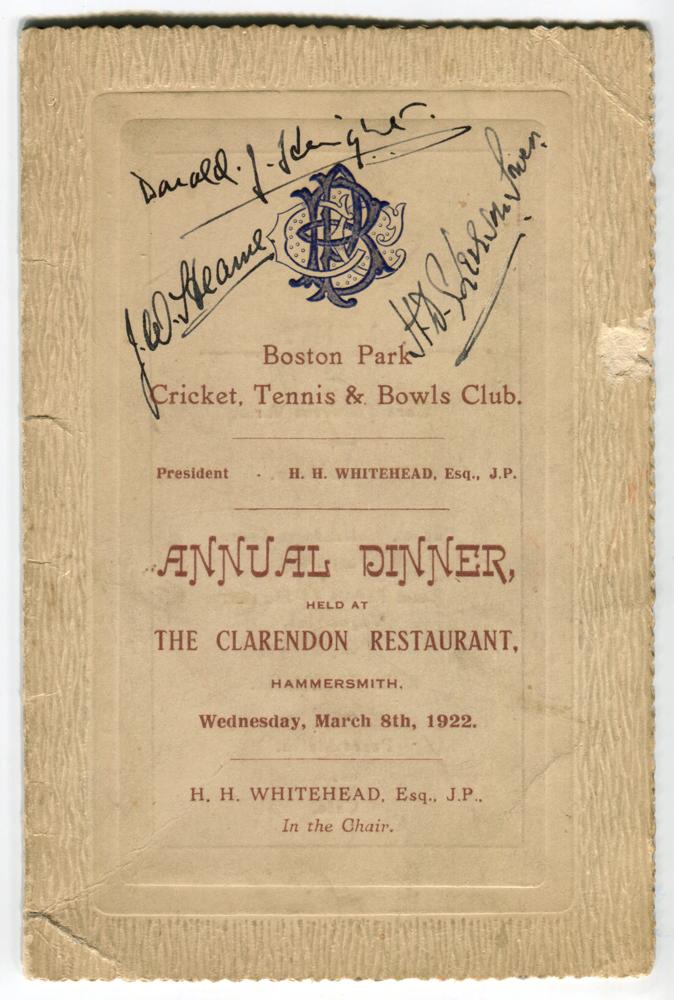 Donald. J. Knight.
J. W. Hearne
H. D. G. Leveson Gower.
Boston Park
Cricket, Tennis & Bowls Club.
President - H. H. WHITEHEAD, Esq., J.P.
ANNUAL DINNER,
HELD AT
THE CLARENDON RESTAURANT,
HAMMERSMITH,
Wednesday, March 8th, 1922.
H. H. WHITEHEAD, Esq., J.P.,
In the Chair.